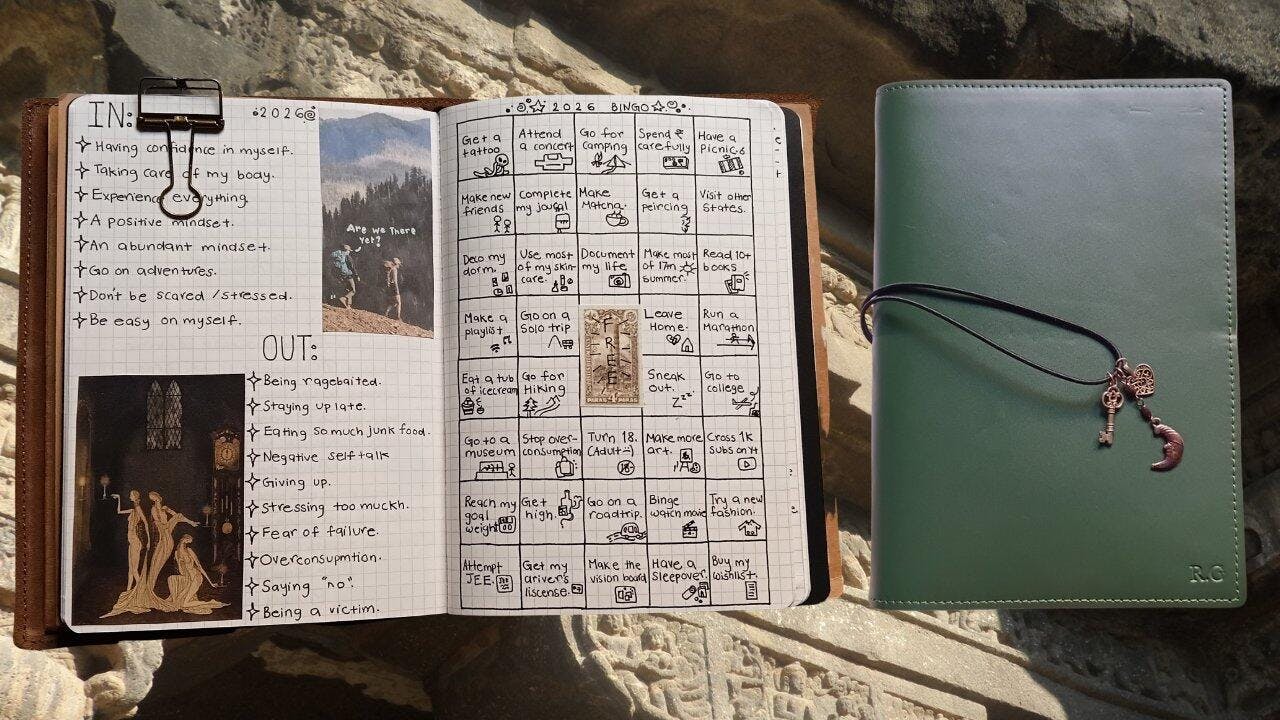 IN:
2026
Having confidence in myself.
Taking care of my body.
Experience everything
A positive mindset.
An abundant mindset.
Go on adventures.
Don't be scared / stressed.
Be easy on myself.
Are we there
yet?
OUT:
Being ragebaited.
Staying up late.
Eating so much junk food.
Negative self talk
Giving up.
Stressing too muckh.
Fear of failure.
Overconsupmtion.
Saying "no".
Being a victim.
2026 BINGO
Get a
tattoo
Attend
a concert
Go for
camping
Spend ₹
carefully
Have a
picnic.
Make new
friends
Complete
my jou
Make
Matcha.
Get a
peircing
Visit other
States.
Deco my
dorm.
Use most
of my skin-
care.
Document
my life
Make most
of 17th
summer.
Read 10+
books
Make a
playlist.
Go on a
Solo trip
FREE
Leave
Home.
Run a
Marathon
Eat a tub
of icecream
Go for
Hiking
Sneak
out.
Zzz
Go to
college
Go to a
museum
Stop over-
consumption
Turn 18.
(Adult :)
18
Make more
art.
Cross 1k
Subs on yt
Reach my
goal
weight
Get
high.
Go on a
roadtrip.
Binge
watch movie
Try a new
fashion.
Attempt
JEE.
Get my
driver's
liscense.
Make the
vision board
Have a
Sleepover.
Buy my
wishlist.
R.G